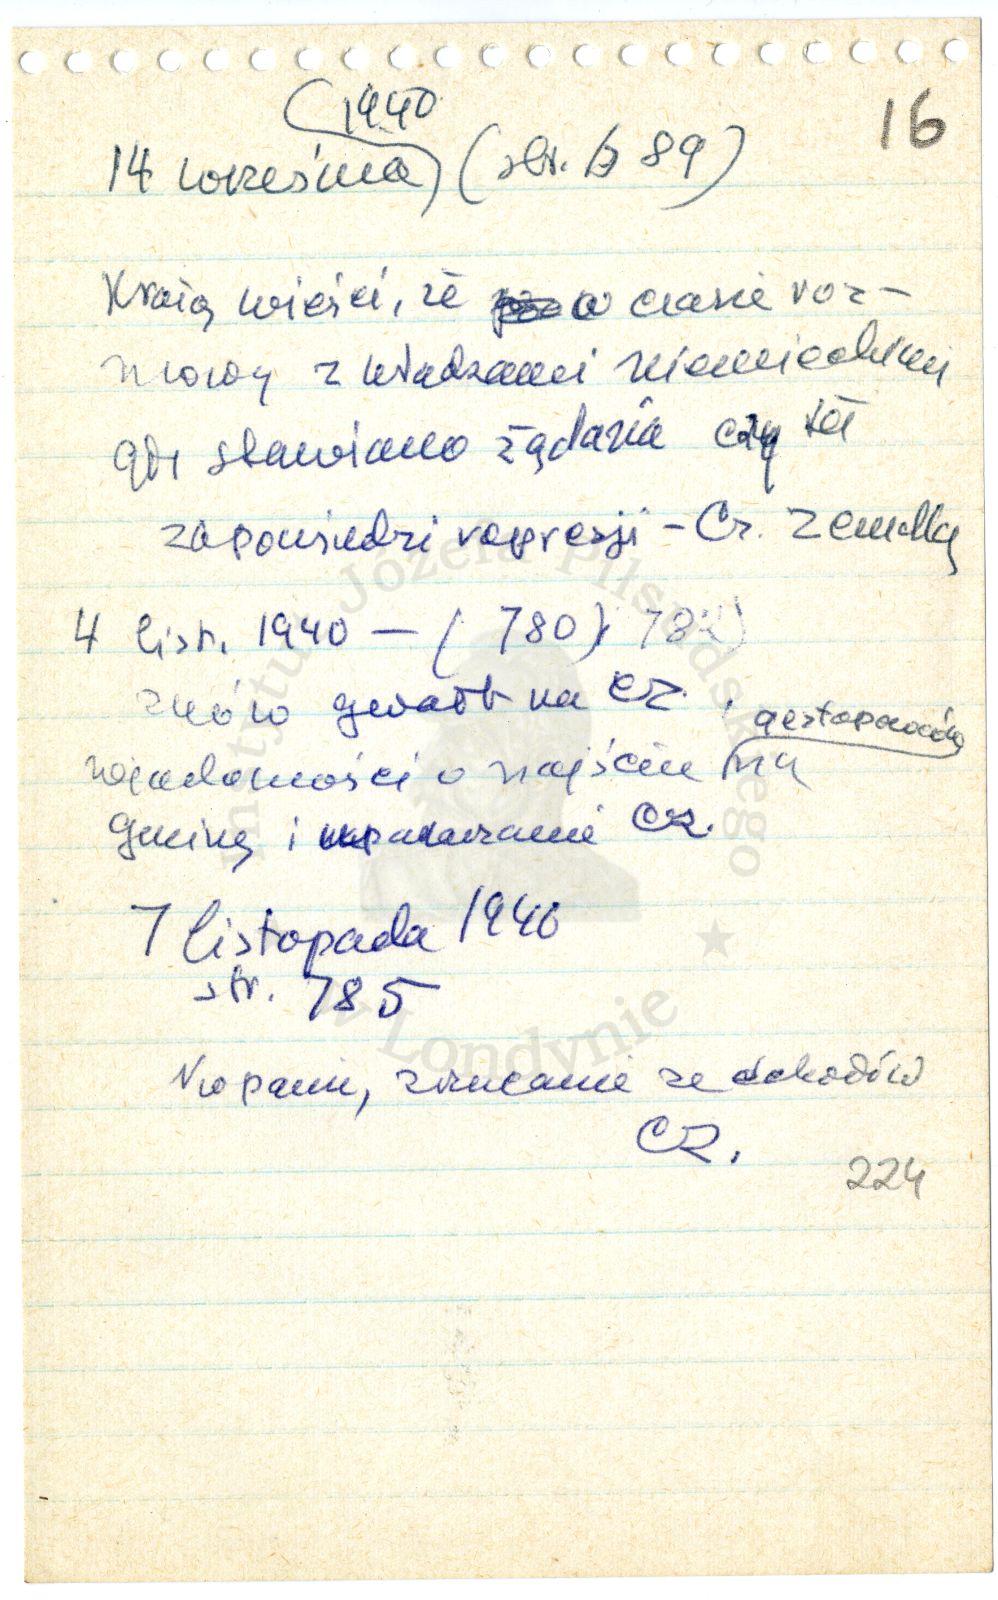 16
1940
14 września (str. 89)
Krążą wieści, że w czasie roz-
mowy z władzami niemieckimi
gdy stawiano żądania czy też
zapowiedzi represji - Cz. zemdlał
4 list. 1940 - (780) 782)
znów gwałt na Cz.
gestapowców
wiadomości o najściu na
gminę i Cz.
7 listopada 1940
str. 785
Kopanie, zrzucanie ze schodów
Cz.
224
Instytut Józefa Piłsudskiego
w Londynie